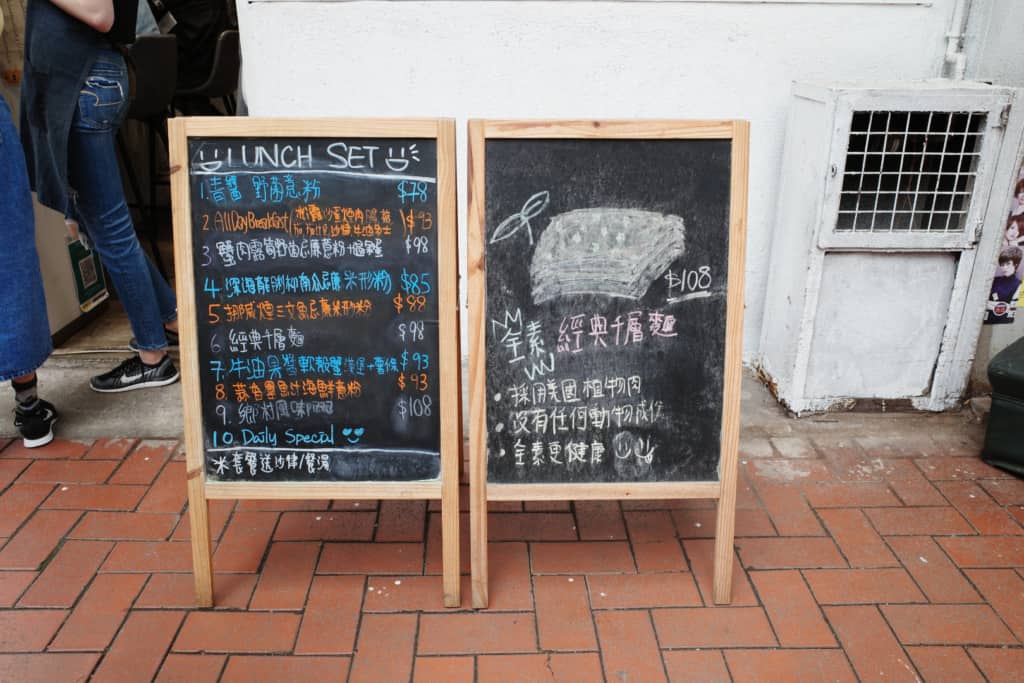 LUNCH SET
1. 青醬 野菌意粉 $78
2. All Day Breakfast $93
3. 蟹肉露筍 意粉 $98
4. 米形粉 $85
5. 挪威煙三文魚 米形粉 $88
6 經典千層麵 $98
7. 牛油果醬軟殼蟹漢堡+薯條 $93
8. 蒜香墨魚汁海鮮意粉 $93
9. 鄉村風味pizza $108
10 Daily Special
米套餐送沙律/餐湯
$108
全素 經典千層麵
• 採用美國植物肉
• 沒有任何動物成份
• 全素更健康